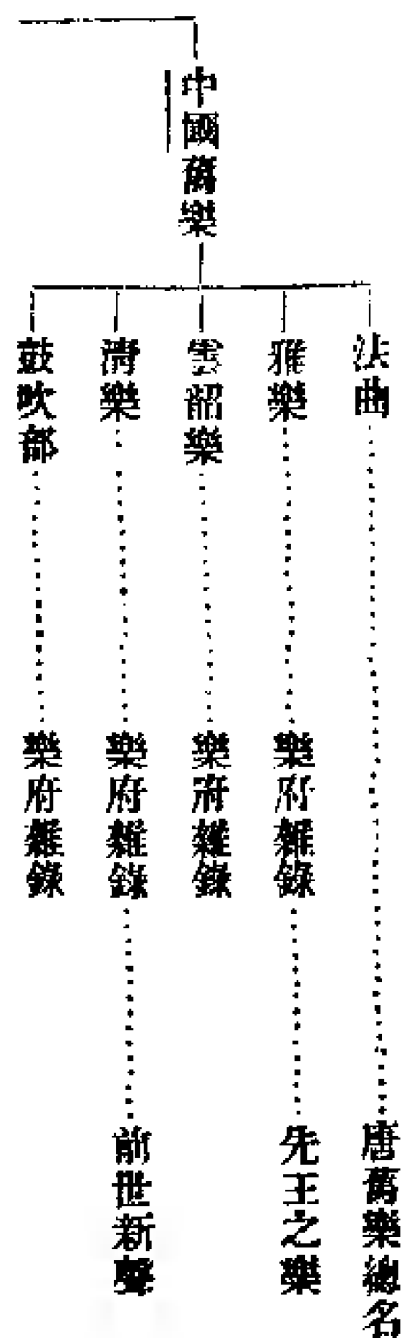 中國舊樂
法曲
唐舊樂總名
雅樂
樂府雜錄
先王之樂
雲韶樂
樂府雜錄
清樂
樂府雜錄
前世新聲
鼓吹部
樂府雜錄